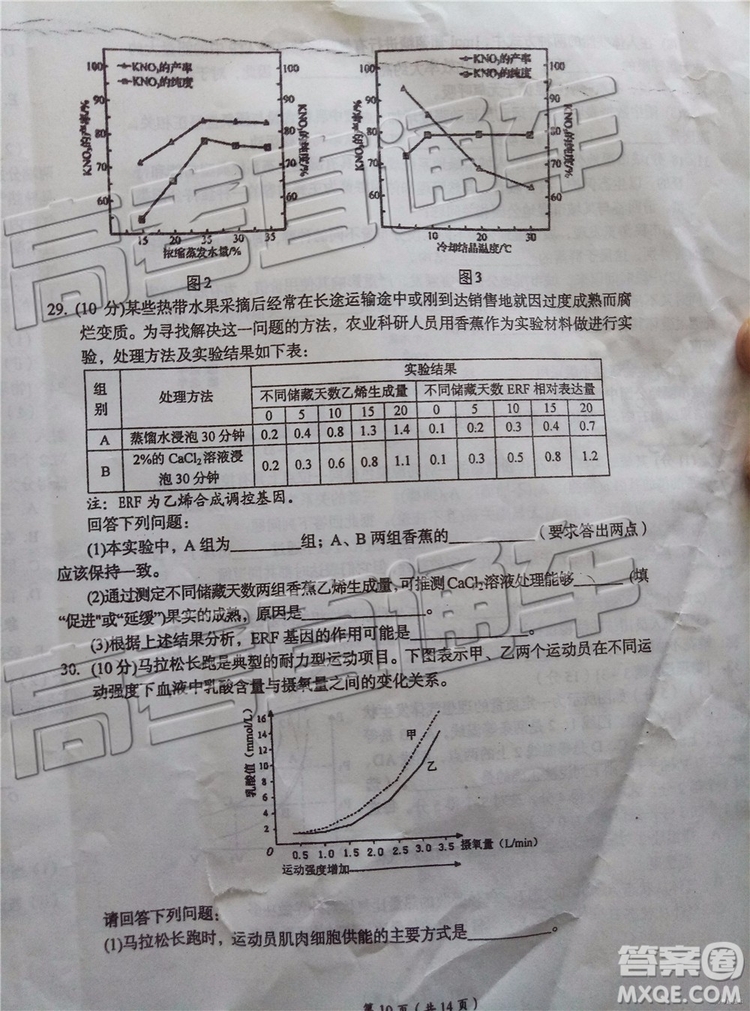 KNO₃的产率
KNO₃的纯度
KNO₃的产率/%
KNO₃的纯度/%
100
90
80
70
60
100
90
80
70
60
15 20 25 30 35
浓缩蒸发水量/%
图2
KNO₃的产率
KNO₃的纯度
KNO₃的产率/%
KNO₃的纯度/%
100
90
80
70
60
100
90
80
70
60
10 20 30
冷却结晶温度/℃
图3
29. (10 分)某些热带水果采摘后经常在长途运输途中或刚到达销售地就因过度成熟而腐
烂变质。为寻找解决这一问题的方法，农业科研人员用香蕉作为实验材料做进行实
验，处理方法及实验结果如下表：
组别 处理方法 实验结果
不同储藏天数乙烯生成量 不同储藏天数 ERF 相对表达量
0 5 10 15 20 0 5 10 15 20
A 蒸馏水浸泡 30 分钟 0.2 0.4 0.8 1.3 1.4 0.1 0.2 0.3 0.4 0.7
B 2%的 CaCl₂ 溶液浸泡 30 分钟 0.2 0.3 0.6 0.8 1.1 0.1 0.3 0.5 0.8 1.2
注：ERF 为乙烯合成调控基因。
回答下列问题：
(1)本实验中，A 组为________组；A、B 两组香蕉的__________（要求答出两点）
应该保持一致。
(2)通过测定不同储藏天数两组香蕉乙烯生成量,可推测 CaCl₂溶液处理能够______(填
“促进”或“延缓”)果实的成熟，原因是______________。
(3)根据上述结果分析，ERF 基因的作用可能是______________。
30. (10 分)马拉松长跑是典型的耐力型运动项目。下图表示甲、乙两个运动员在不同运
动强度下血液中乳酸含量与摄氧量之间的变化关系。
乳酸值（mmol/L）
16
14
12
10
8
6
4
2
甲
乙
0.5 1.0 1.5 2.0 2.5 3.0 3.5 摄氧量（L/min）
运动强度增加
请回答下列问题：
(1)马拉松长跑时，运动员肌肉细胞供能的主要方式是__________。
第 10 页（共 14 页）
高考直通车
高考直通车
答案圈
MXQE.COM